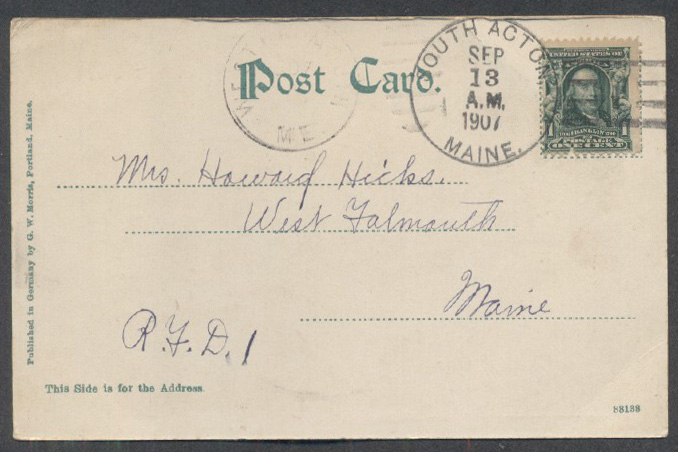 Post Card.
SOUTH ACTON
SEP
13
A.M.
1907
MAINE.
ME
UNITED STATES OF
1 FRANKLIN 1
POSTAGE
ONE CENT
Mrs. Howard Hicks.
West Falmouth
Maine
R.F.D. 1
This Side is for the Address.
88188
Published in Germany by G. W. Morris, Portland, Maine.